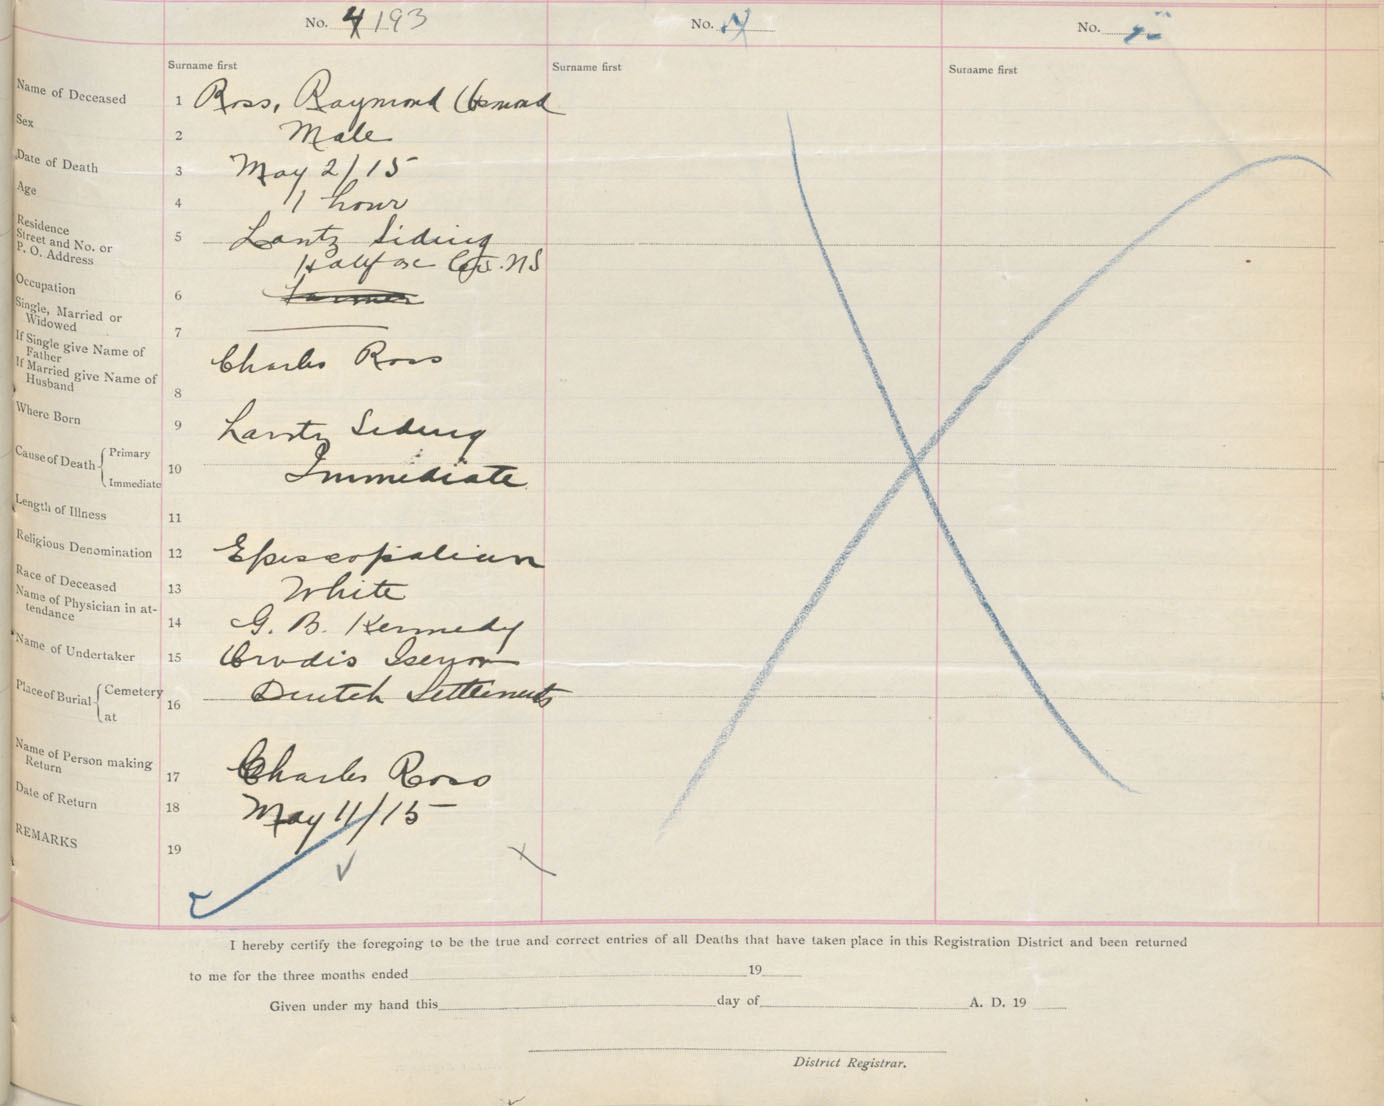 No. 4 193
No.
No.
Surname first
Surname first
Surname first
Name of Deceased 1 Ross, Raymond Osmond
Sex 2 Male
Date of Death 3 May 2/15
Age 4 1 hour
Residence
Street and No. or
P. O. Address
5 Lantz Siding
Halifax Co. NS
Occupation 6 Farmer
Single, Married or
Widowed
7
If Single give Name of
Father
If Married give Name of
Husband
Charles Ross
8
Where Born 9 Lantz Siding
Cause of Death Primary
Immediate
10 Immediate
Length of Illness 11
Religious Denomination 12 Episcopalian
Race of Deceased 13 White
Name of Physician in at-
tendance
14 G. B. Kennedy
Name of Undertaker 15
Place of Burial Cemetery
at
16 Dutch Settlement
Name of Person making
Return
17 Charles Ross
Date of Return 18 May 11/15
REMARKS 19
I hereby certify the foregoing to be the true and correct entries of all Deaths that have taken place in this Registration District and been returned
to me for the three months ended 19
Given under my hand this day of A. D. 19
District Registrar.